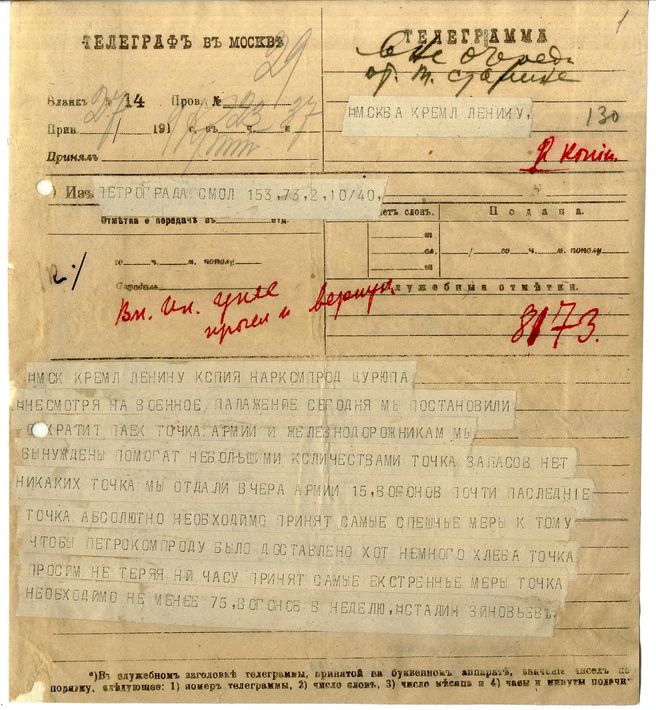 1
ТЕЛЕГРАФЪ въ МОСКВѢ
ТЕЛЕГРАММА
вне очереди
29
Бланкъ № 14 Пров. №
27
Прин. / 191 г. въ ч. м
23 37
МСКВА КРЕМЛ ЛЕНИНУ,
130
Принялъ
Изъ ПЕТРОГРАДА СМОЛ 153,73,2,10/40,
Отмѣтка о передачѣ въ отд.
етъ словъ.
Подана.
го ч. м. пополу
пл.
сл.
/ го ч. м. пополу
Передалъ
Служебныя отмѣтки.
Вл. Ил. Униг
прочел и вернул
8173.
МСК КРЕМЛ ЛЕНИНУ КСПИЯ НАРКСМПРОД ЦУРЮПА
НЕСМОТРЯ НА ВОЕННОЕ ПАЛАЖЕНИЕ СЕГОДНЯ МЫ ПОСТАНОВИЛИ
С КРАТИТ ПАЕК ТОЧКА. АРМИИ И ЖЕЛЕЗНОДОРОЖНИКАМ МЫ
ВЫНУЖДЕНЫ ПОМОГАТ НЕБОЛЬШИМИ КСЛИЧЕСТВАМИ ТОЧКА ЗАПАСОВ НЕТ
НИКАКИХ ТОЧКА МЫ ОТДАЛИ ВЧЕРА АРМИИ 15,ВОРОНОВ ПОЧТИ ПАСЛЕДНІЕ
ТОЧКА АБСОЛЮТНО НЕОБХОДИМО ПРИНЯТ САМЫЕ СПЕШНЫЕ МЕРЫ К ТОМУ
ЧТОБЫ ПЕТРОКОМПРОДУ БЫЛО ДОСТАВЛЕНО ХОТ НЕМНОГО ХЛЕБА ТОЧКА
ПРОСИМ НЕ ТЕРЯЯ НИ ЧАСУ ПРИНЯТ САМЫЕ ЕКСТРЕННЫЕ МЕРЫ ТОЧКА
НЕОБХОДИМО НЕ МЕНЕЕ 75,ВОГОНОВ В НЕДЕЛЮ,СТАЛИН ЗИНОВЬЕВ.
*)Въ служебномъ заголовкѣ телеграммы, принятой на буквенномъ аппаратѣ, значеніе чиселъ по
порядку, слѣдующее: 1) номеръ телеграммы, 2) число словъ, 3) число мѣсяца и 4) часы и минуты подачи